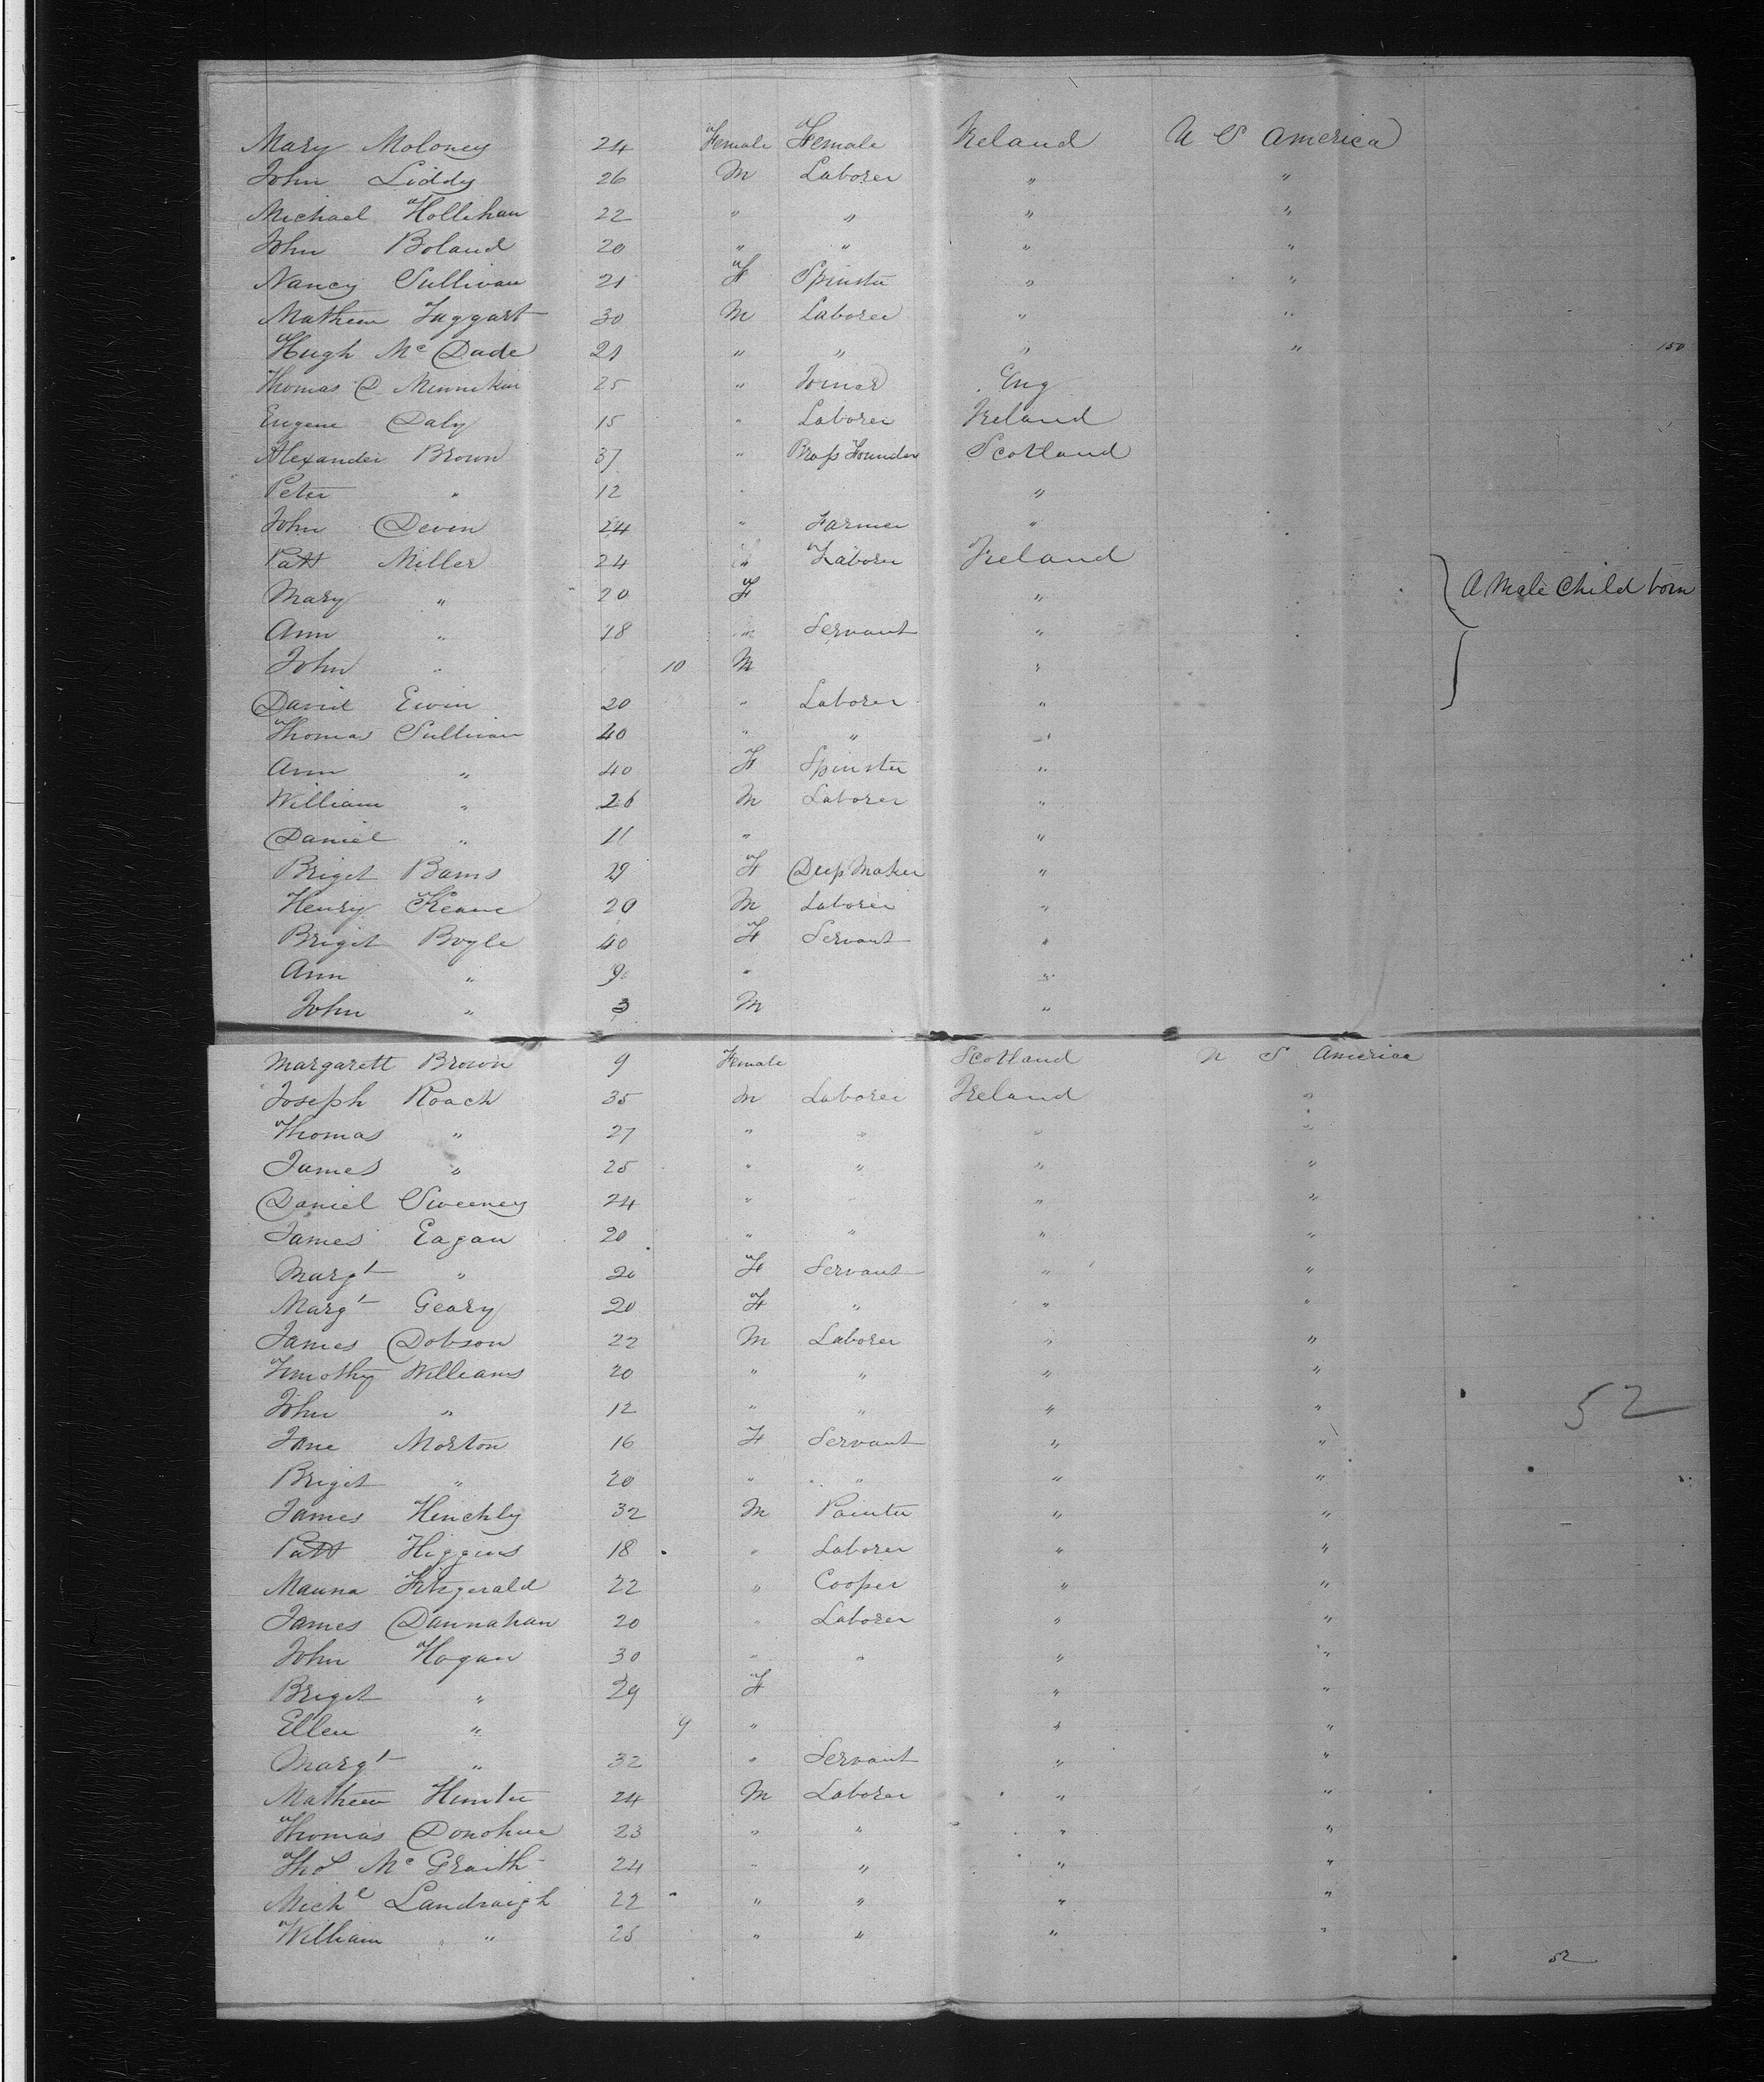 Mary Moloney 24 Female Female Ireland U S America
John Liddy 26 M Laborer " "
Michael Hollihan 22 " " " "
John Boland 20 " " " "
Nancy Sullivan 21 F Spinster " "
Mathew Taggart 30 M Laborer " "
Hugh Mc Dade 21 " " " " 150
Thomas D Minnikin 25 " Joiner Eng
Eugene Daly 15 " Laborer Ireland
Alexander Brown 37 " Brass Founder Scotland
Peter " 12 " "
John Deven 24 " Farmer "
Patt Miller 24 " Laborer Ireland
Mary " 20 F " A Male Child born
Ann " 18 " Servant "
John " 10 M "
David Ewin 20 " Laborer "
Thomas Sullivan 40 " " "
Ann " 40 F Spinster "
William " 26 M Laborer "
Daniel " 11 " "
Briget Barns 29 F Maker "
Henry Keane 20 M Laborer "
Briget Boyle 40 F Servant "
Ann " 9 " "
John " 3 M "
Margarett Brown 9 Female Scotland U S America
Joseph Roach 35 M Laborer Ireland "
Thomas " 27 " " " "
James " 25 " " " "
Daniel Sweeney 24 " " "
James Eagan 20 " " " "
Margt " 20 F Servant " "
Margt Geary 20 F " " "
James Dobson 22 M Laborer " "
Timothy Williams 20 " " " "
John " 12 " " " " 52
Jane Morton 16 F Servant " "
Briget " 20 " " " "
James Hinchly 32 M Painter " "
Patt Higgins 18 " Laborer " "
Fitzgerald 22 " Cooper " "
James Dannahan 20 " Laborer " "
John Hogan 30 " " " "
Briget " 29 F " "
Ellen " 9 " " "
Margt " 32 " Servant " "
Mathew Hunter 24 M Laborer " "
Thomas Donohue 23 " " " "
Thos Mc Graith 24 " " " "
Michl Landraigh 22 " " " "
William " 25 " " " "
52